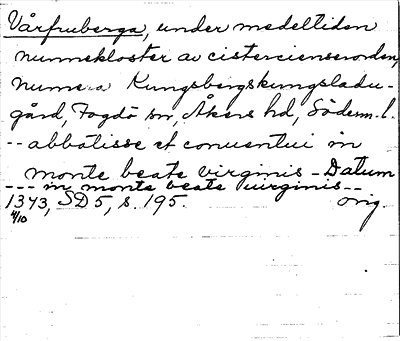 Vårfruberga, under medeltiden
nunnekloster av cistercienserorden,
numera Kungsbergs kungsladu-
gård, Fogdö sn, Åkers hd, Söderm. l.
-- abbatisse et conuentui in
monte beate virginis - Datum
--- in monte beate uirginis --
1343, SD 5, s. 195. orig.
4/10